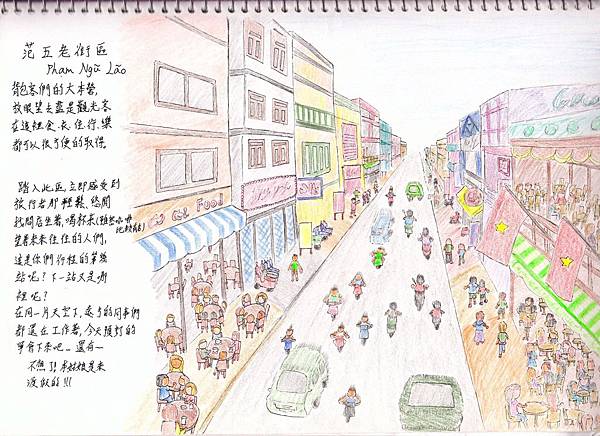 范五老街區
Pham Ngũ Lão
背包客們的大本營,
放眼望去盡是觀光客
在這裡食、衣、住、行、樂
都可以很方便的取得
踏入此區,立即感受到
旅行者那輕鬆、悠閒
找間店坐著,喝杯茶(雖然咖啡
比較配)
望著來來往往的人們,
這是你們行程的第幾
站呢?下一站又是哪
裡呢?
在同一片天空下,遠方的同事們
都還在工作著,今天預訂的
單有下來吧…還有…
不想了!!本姑娘是來
渡假的!!!
Food